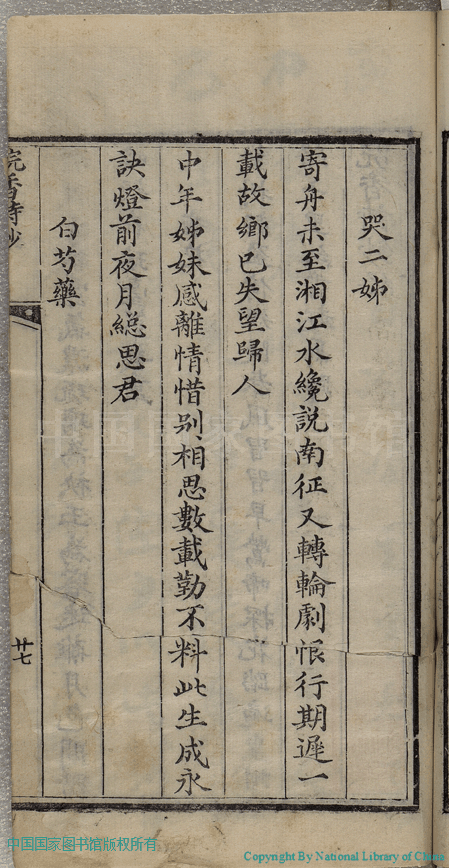 哭二姊
寄舟未至湘江水纔說南征又轉輪劇恨行期遲一
載故鄉已失望歸人
中年姊妹感離情惜别相思數載勤不料此生成永
訣燈前夜月總思君
白芍藥
浣香詩鈔
廿七
中国国家图书馆
中国国家图书馆版权所有
Copyright By National Library of China